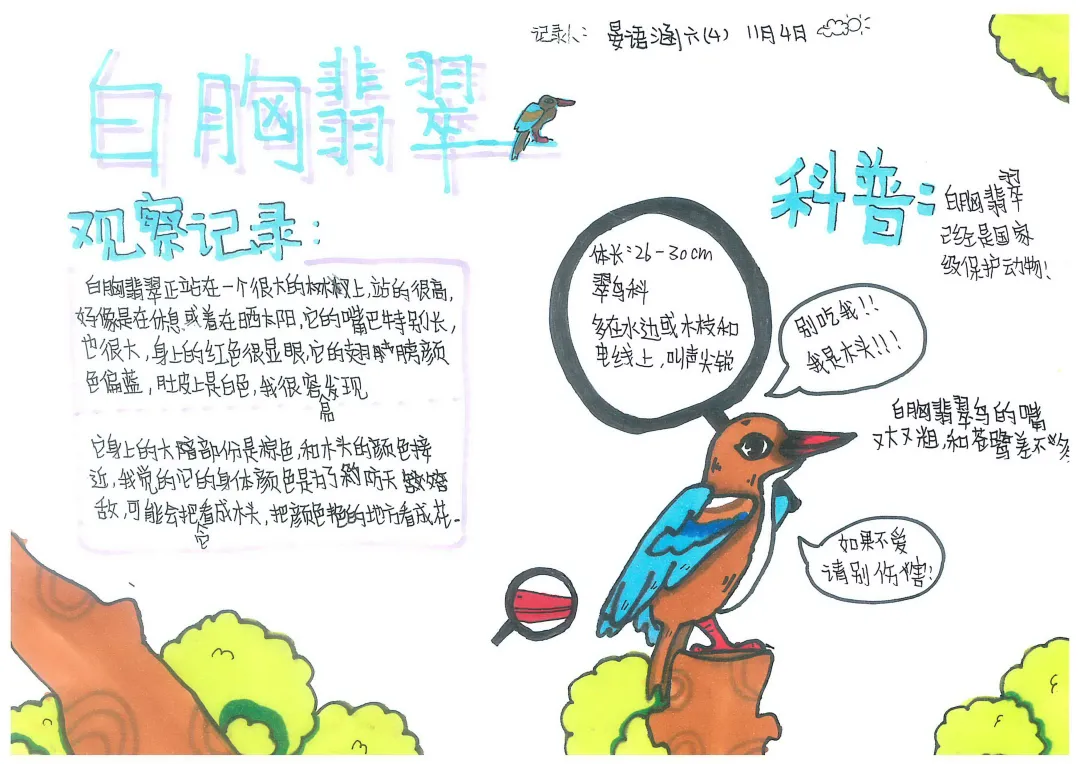 记录人: 晏语涵 六(4) 11月4日
白胸翡翠
观察记录:
白胸翡翠正站在一个很大的树杈上,站的很高,
好像是在休息或着在晒太阳,它的嘴巴特别长,
也很大,身上的红色很显眼,它的翅膀颜
色偏蓝,肚皮上是白色,我很容易发现
它身上的大隔部份是棕色,和木头的颜色接
近,我觉的它的身体颜色是为了防天
敌,可能会把它看成木头,把颜色艳的地方看成花.
科普:
白胸翡翠
已经是国家
级保护动物!
体长:26-30cm
翠鸟科
多在水边或木枝和
电线上,叫声尖锐
别吃我!!
我是木头!!!
白胸翡翠鸟的嘴
又大又粗,和苍鹭差不多
如果不爱
请别伤害!